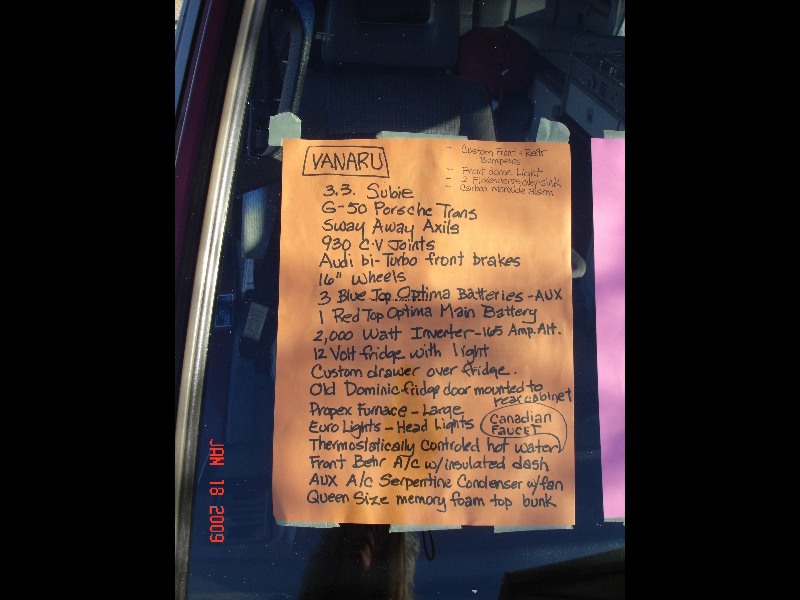 VANARU
- Custom Front + Rear
Bumpers
- Front dome Light
- 2 Fire
- Carbon monoxide alarm
3.3. Subie
G-50 Porsche Trans
Sway Away Axils
930 C.V Joints
Audi bi-Turbo front brakes
16" Wheels
3 Blue Top Optima Batteries - AUX
1 Red Top Optima Main Battery
2,000 Watt Inverter - 165 Amp. Alt.
12 Volt fridge with light
Custom drawer over fridge.
Old Dominic fridge door mounted to
rear cabinet
Propex Furnace - Large
Euro Lights - Head Lights
Canadian
FAUCET
Thermostatically Controled hot water
Front Behr A/C w/insulated dash
AUX A/C Serpentine Condenser w/fan
Queen Size memory foam top bunk
JAN 18 2009